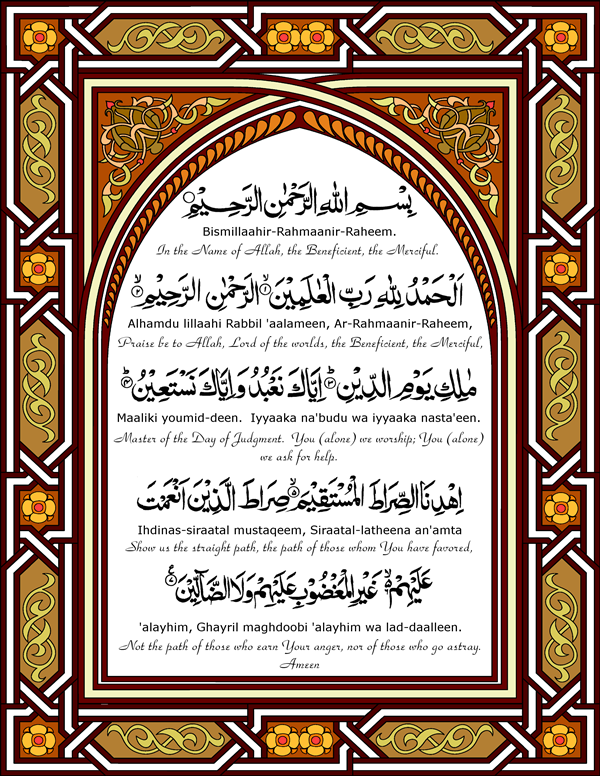 بِسْمِ اللهِ الرَّحْمٰنِ الرَّحِيْمِ
Bismillaahir-Rahmaanir-Raheem.
In the Name of Allah, the Beneficient, the Merciful.
اَلْحَمْدُ لِلّٰهِ رَبِّ الْعٰلَمِيْنَ ۙ‏﴿۱﴾ الرَّحْمٰنِ الرَّحِيْمِ ۙ‏﴿۲﴾
Alhamdu lillaahi Rabbil 'aalameen, Ar-Rahmaanir-Raheem,
Praise be to Allah, Lord of the worlds, the Beneficient, the Merciful,
مٰلِكِ يَوْمِ الدِّيْنِ ؕ‏﴿۳﴾ اِيَّاكَ نَعْبُدُ وَاِيَّاكَ نَسْتَعِيْنُ ؕ‏﴿۴﴾
Maaliki youmid-deen. Iyyaaka na'budu wa iyyaaka nasta'een.
Master of the Day of Judgment. You (alone) we worship; You (alone)
we ask for help.
اِهْدِنَا الصِّرَاطَ الْمُسْتَقِيْمَ ۙ‏﴿۵﴾ صِرَاطَ الَّذِيْنَ اَنْعَمْتَ
Ihdinas-siraatal mustaqeem, Siraatal-latheena an'amta
Show us the straight path, the path of those whom You have favored,
عَلَيْهِمْ ۙ‏﴿۶﴾ غَيْرِ الْمَغْضُوْبِ عَلَيْهِمْ وَلَا الضَّآلِّيْنَ ﴿۷﴾
'alayhim, Ghayril maghdoobi 'alayhim wa lad-daalleen.
Not the path of those who earn Your anger, nor of those who go astray.
Ameen